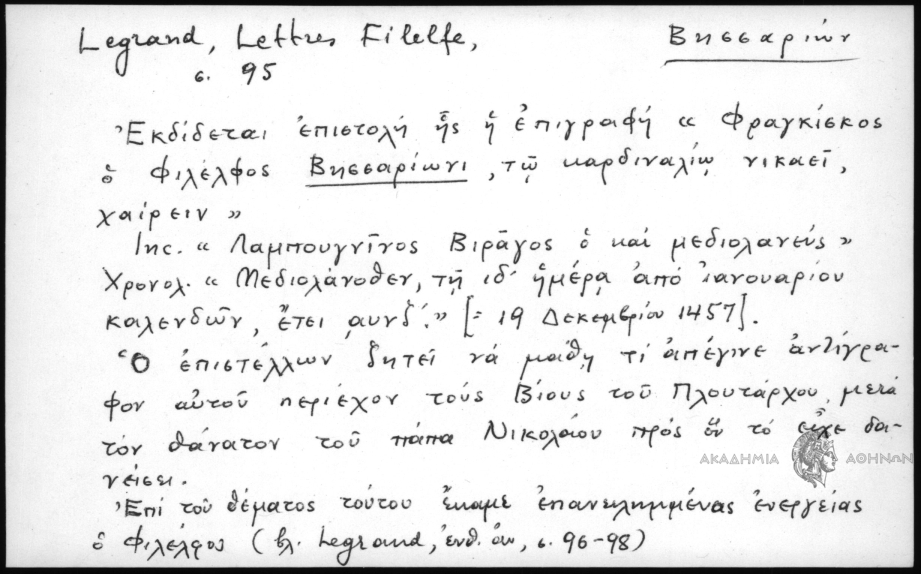 Legrand, Lettres Filelfe, Βησσαρίων
σ. 95
Ἐκδίδεται ἐπιστολή ἧς ἡ ἐπιγραφή « Φραγκίσκος
ὁ Φιλέλφος Βησσαρίωνι, τῷ καρδιναλίῳ νικαεῖ,
χαίρειν »
Inc. « Λαμπουγνῖνος Βιρᾶγος ὁ καί μεδιολανεύς »
Χρονολ. « Μεδιολάνοθεν, τῇ ιδ' ἡμέρᾳ ἀπό ἰανουαρίου
καλενδῶν, ἔτει αυνζ'. » [= 19 Δεκεμβρίου 1457].
Ὁ ἐπιστέλλων ζητεῖ νά μάθῃ τί ἀπέγινε ἀντίγρα-
φον αὐτοῦ περιέχον τούς Βίους τοῦ Πλουτάρχου, μετά
τόν θάνατον τοῦ πάπα Νικολάου πρός ὅν τό εἶχε δα-
νείσει.
ΑΚΑΔΗΜΙΑ ΑΘΗΝΩΝ
Ἐπί τοῦ θέματος τούτου ἔκαμε ἐπανειλημμένας ἐνεργείας
ὁ Φιλέλφος (βλ. Legrand, ἔνθ. ἀν, σ. 96-98)